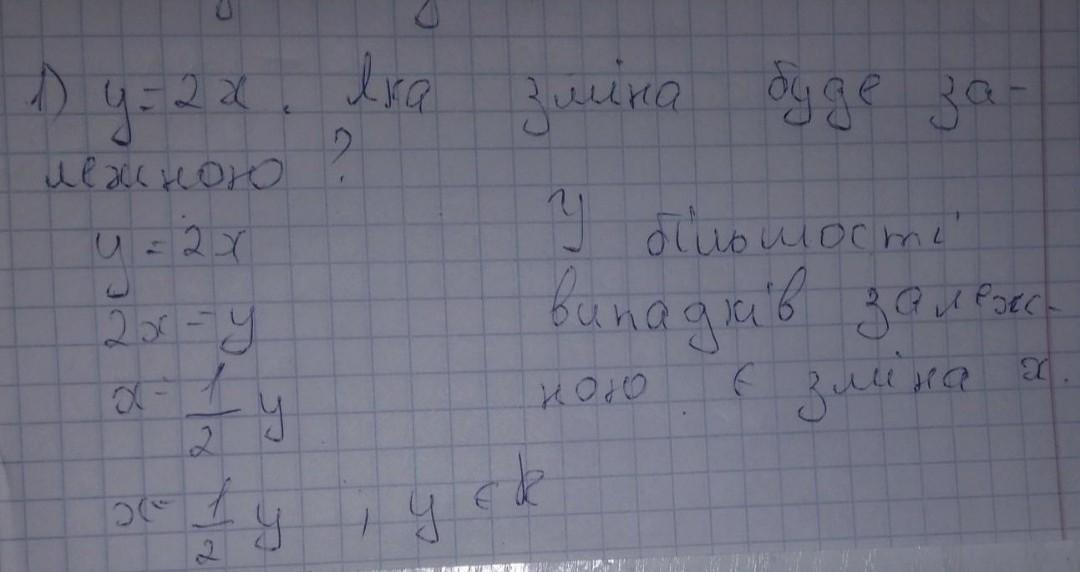 1) y = 2x. Яка зміна буде за-
лежною?
y = 2x
2x = y
x = 1/2 y
x = 1/2 y, y ∈ k
У більшості
випадків залеж-
ною є зміна x.